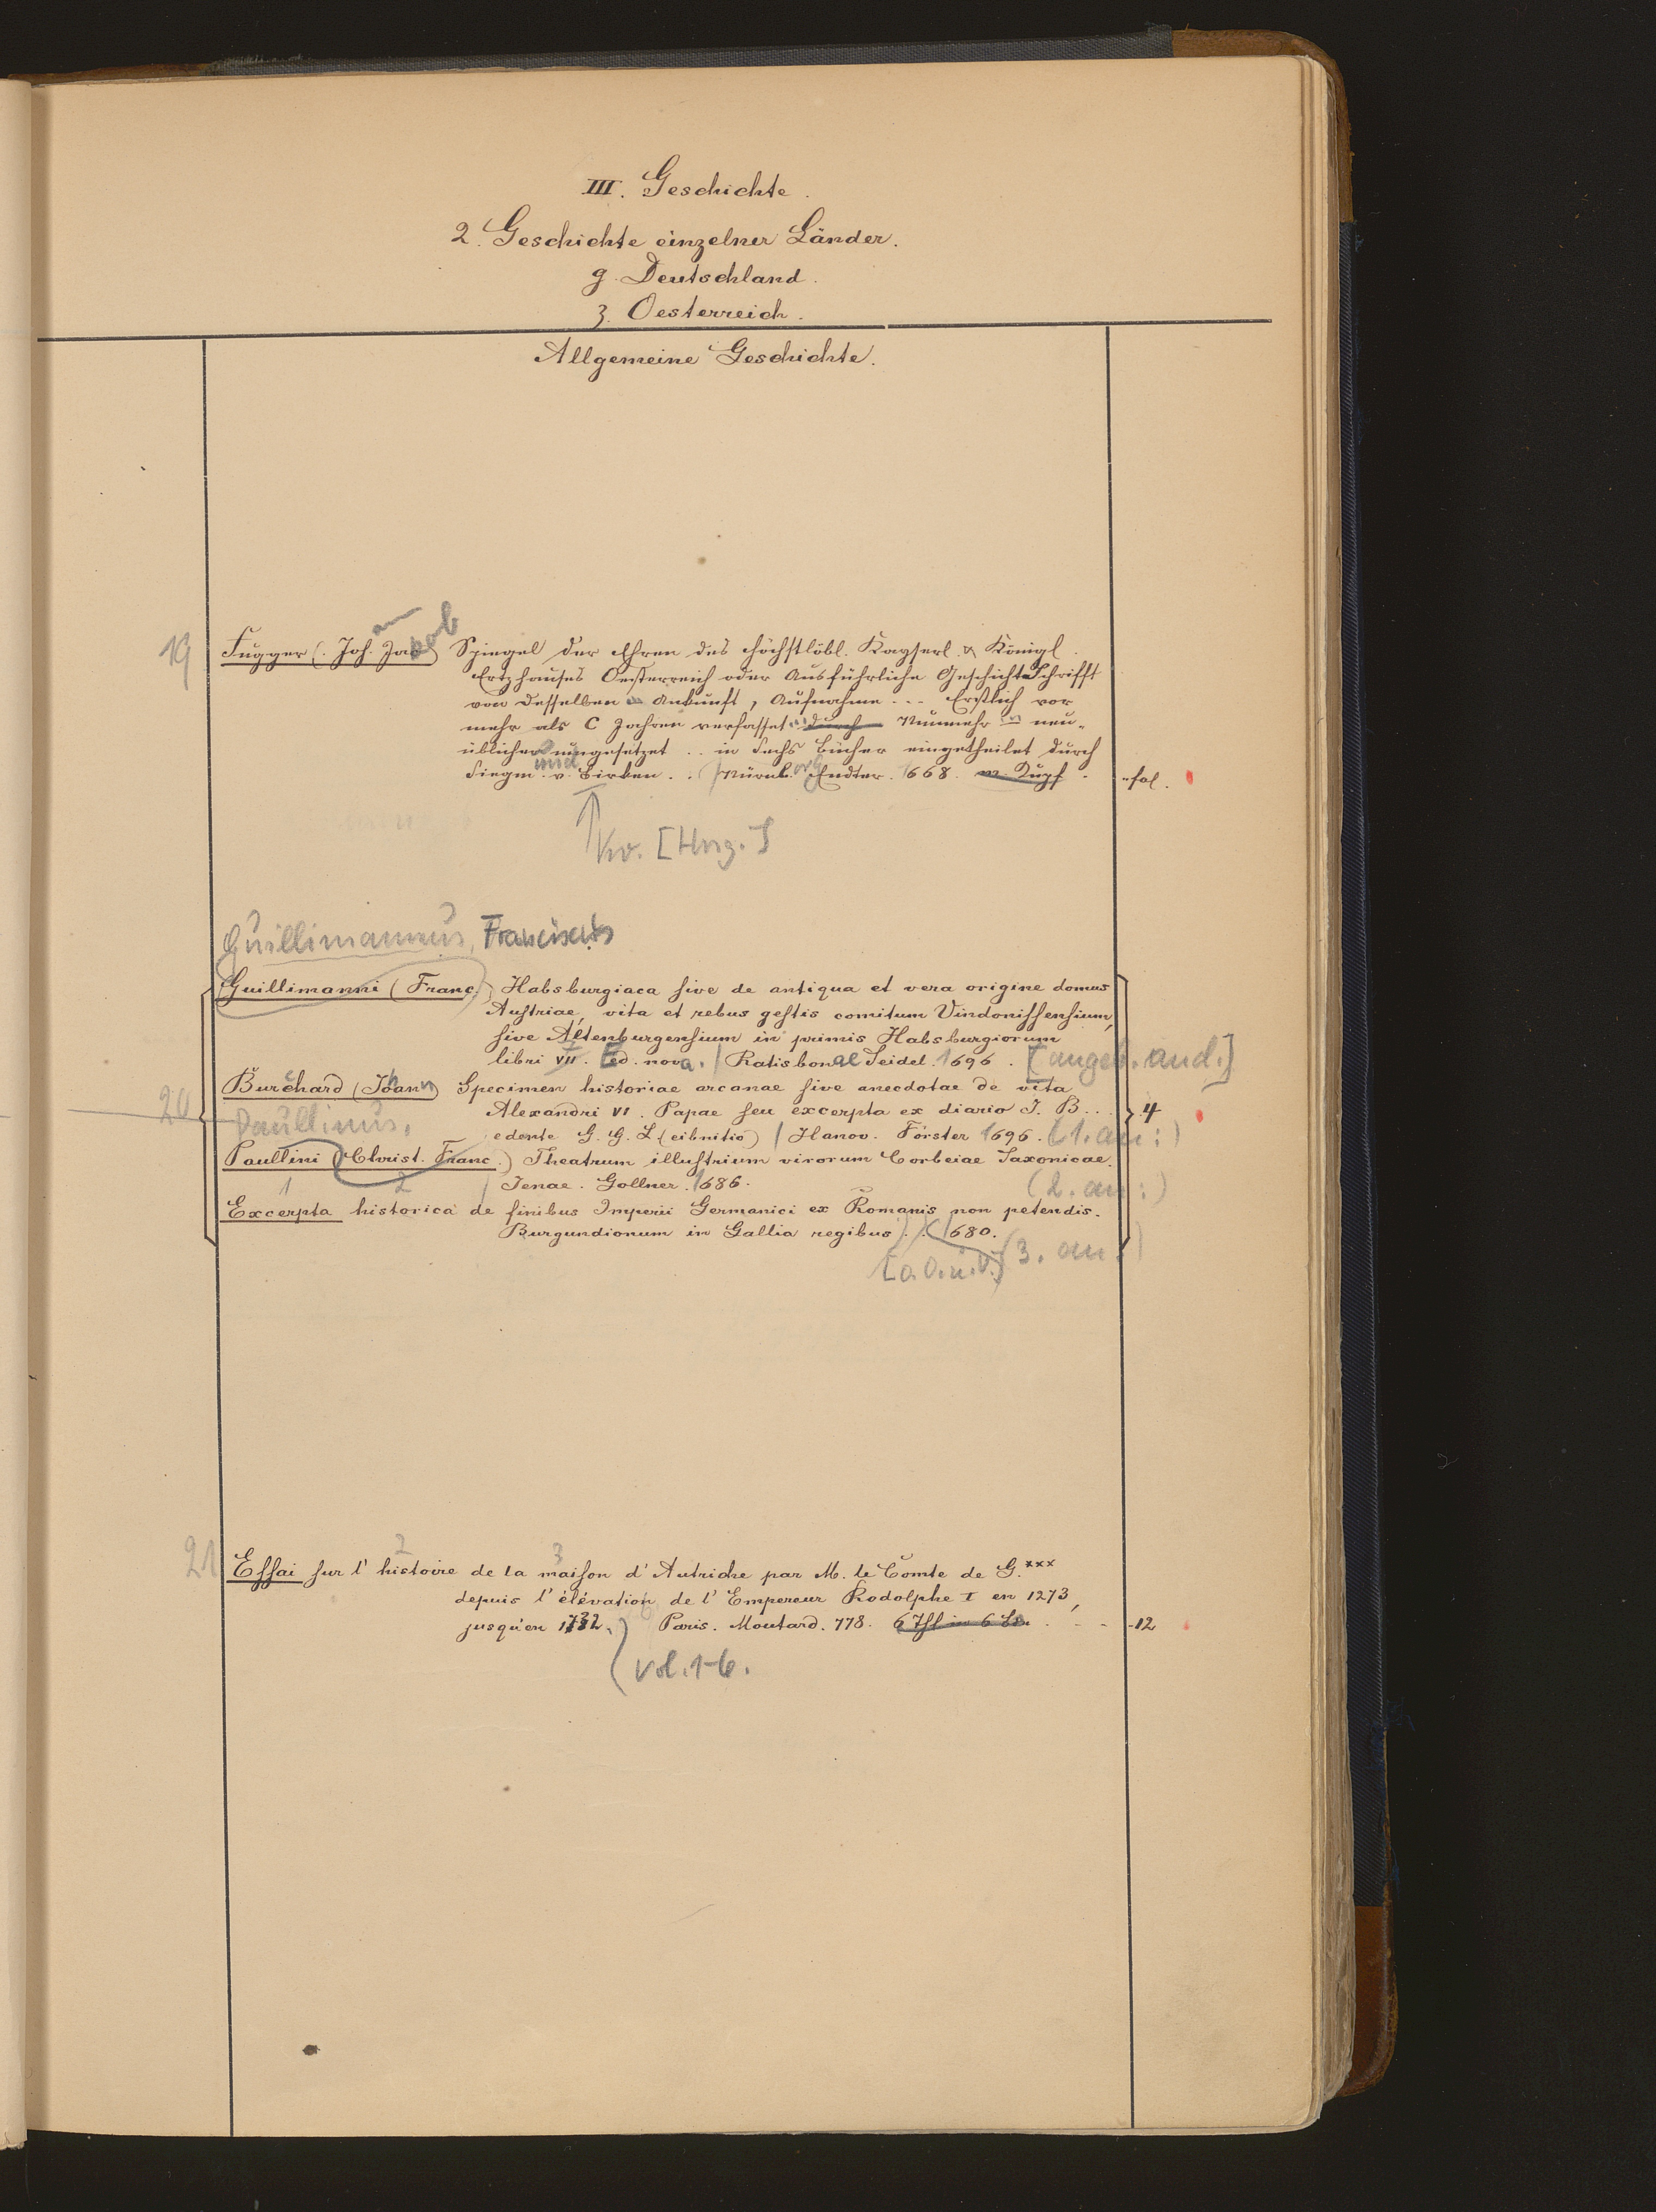 III. Geschichte.
2. Geschichte einzelner Länder.
g. Deutschland.
3. Oesterreich.
Allgemeine Geschichte.
19 Fugger (Joh.ann Jacob) Spiegel der Ehren des Höchstlöbl. Kayserl. & Königl.
Ertzhauses Oesterreich oder Ausführliche GeschichtSchrifft
von desselben Ankunft, Aufnahme ... Erstlich vor
mehr als C Jahren verfasset ... durch Nunmehr ... neu-
üblicher umgesetzet .. in Sechs Bücher eingetheilet durch
Siegmund v. Birken. . / Nürnb.org Endter. 1668. m. Kupf. . -fol.
Kv. [Hrg.]
Guillimannus, Franciscus
Guillimanni (Franc.) Habsburgiaca sive de antiqua et vera origine domus
Austriae, vita et rebus gestis comitum Vindonissensium,
sive Altenburgensium in primis Habsburgiorum
libri VII. Ed. nova. / Ratisbonae Seidel. 1696. [angeb. and.]
Burchard (Johann) Specimen historiae arcanae sive anecdotae de vita
20 Alexandri VI. Papae seu excerpta ex diario J. B... 4
Paullinus,
edente G. G. L(eibnitio) / Hanov. Förster 1696. (1. an:)
Paullini (Christ. Franc.) Theatrum illustrium virorum Corbeiae Saxonicae.
/ Jenae. Gollner. 1686. (2. an:)
1 2
Excerpta historica de finibus Imperii Germanici ex Romanis non petendis.
Burgundionum in Gallia regibus). . (1680.
[o. O. u. V.] (3. an.)
2 3
21 Essai sur l'histoire de la maison d'Autriche par M. le Comte de G.***
depuis l'élévation de l'Empereur Rodolphe I en 1273,
jusqu'en 1732.) Paris. Moutard. 778. 6 Thl in 6 Bn. . - - -12
(Vol. 1-6.